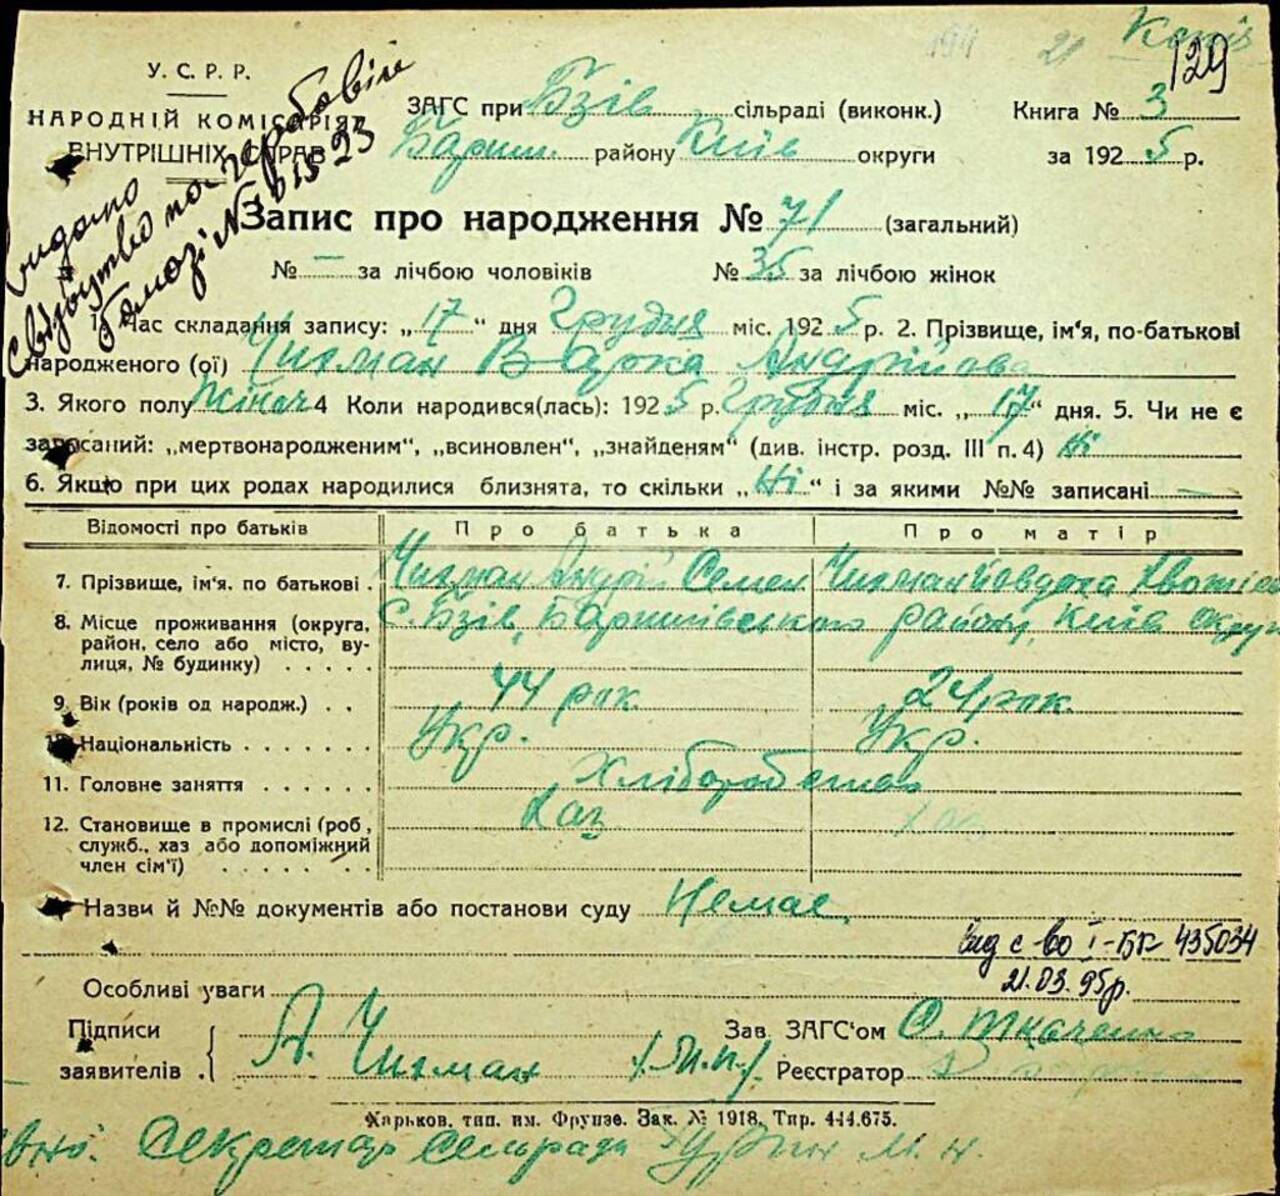 Копія
129
У. С. Р. Р.
НАРОДНІЙ КОМІСАРІЯТ
ВНУТРІШНІХ СПРАВ
ЗАГС при Бзів сільраді (виконк.)
Книга № 3
Бариш. району Київ округи
за 1925 р.
видано
свідоцтво по
Запис про народження № 71 (загальний)
№ — за лічбою чоловіків № 35 за лічбою жінок
1. Час складання запису: „17" дня Грудня міс. 1925 р. 2. Прізвище, ім'я, по-батькові
народженого (ої) Чихман Варка Андрійова
3. Якого полу Жіноч 4 Коли народився(лась): 1925 р. Грудня міс. „17" дня. 5. Чи не є
записаний: „мертвонародженим", „всиновлен", „знайденям" (див. інстр. розд. III п. 4) Ні
6. Якщо при цих родах народилися близнята, то скільки „Ні" і за якими №№ записані —
Відомості про батьків Про батька Про матір
7. Прізвище, ім'я. по батькові . Чихман Андрій Семен Чихман
8. Місце проживання (округа, с. Бзів, Баришівського району, Київ округи
район, село або місто, ву-
лиця, № будинку) . . . . .
9. Вік (років од народж.) . . 44 рок. 24 рок.
10. Національність . . . . . . . Укр. Укр.
11. Головне заняття . . . . . . Хліборобство
12. Становище в промислі (роб, Хаз Хаз
служб., хаз або допоміжний
член сім'ї) . . . . . . .
Назви й №№ документів або постанови суду Немає
вид с-во І-БК 435034
21.03.95р.
Особливі уваги
Підписи
заявителів . А. Чихман /М.п./
Зав. ЗАГС'ом О. Ткаченко
Реєстратор
Харьков, тип. им. Фрунзе. Зак. № 1918. Тир. 444.675.
Секретар Сельради М. Н.